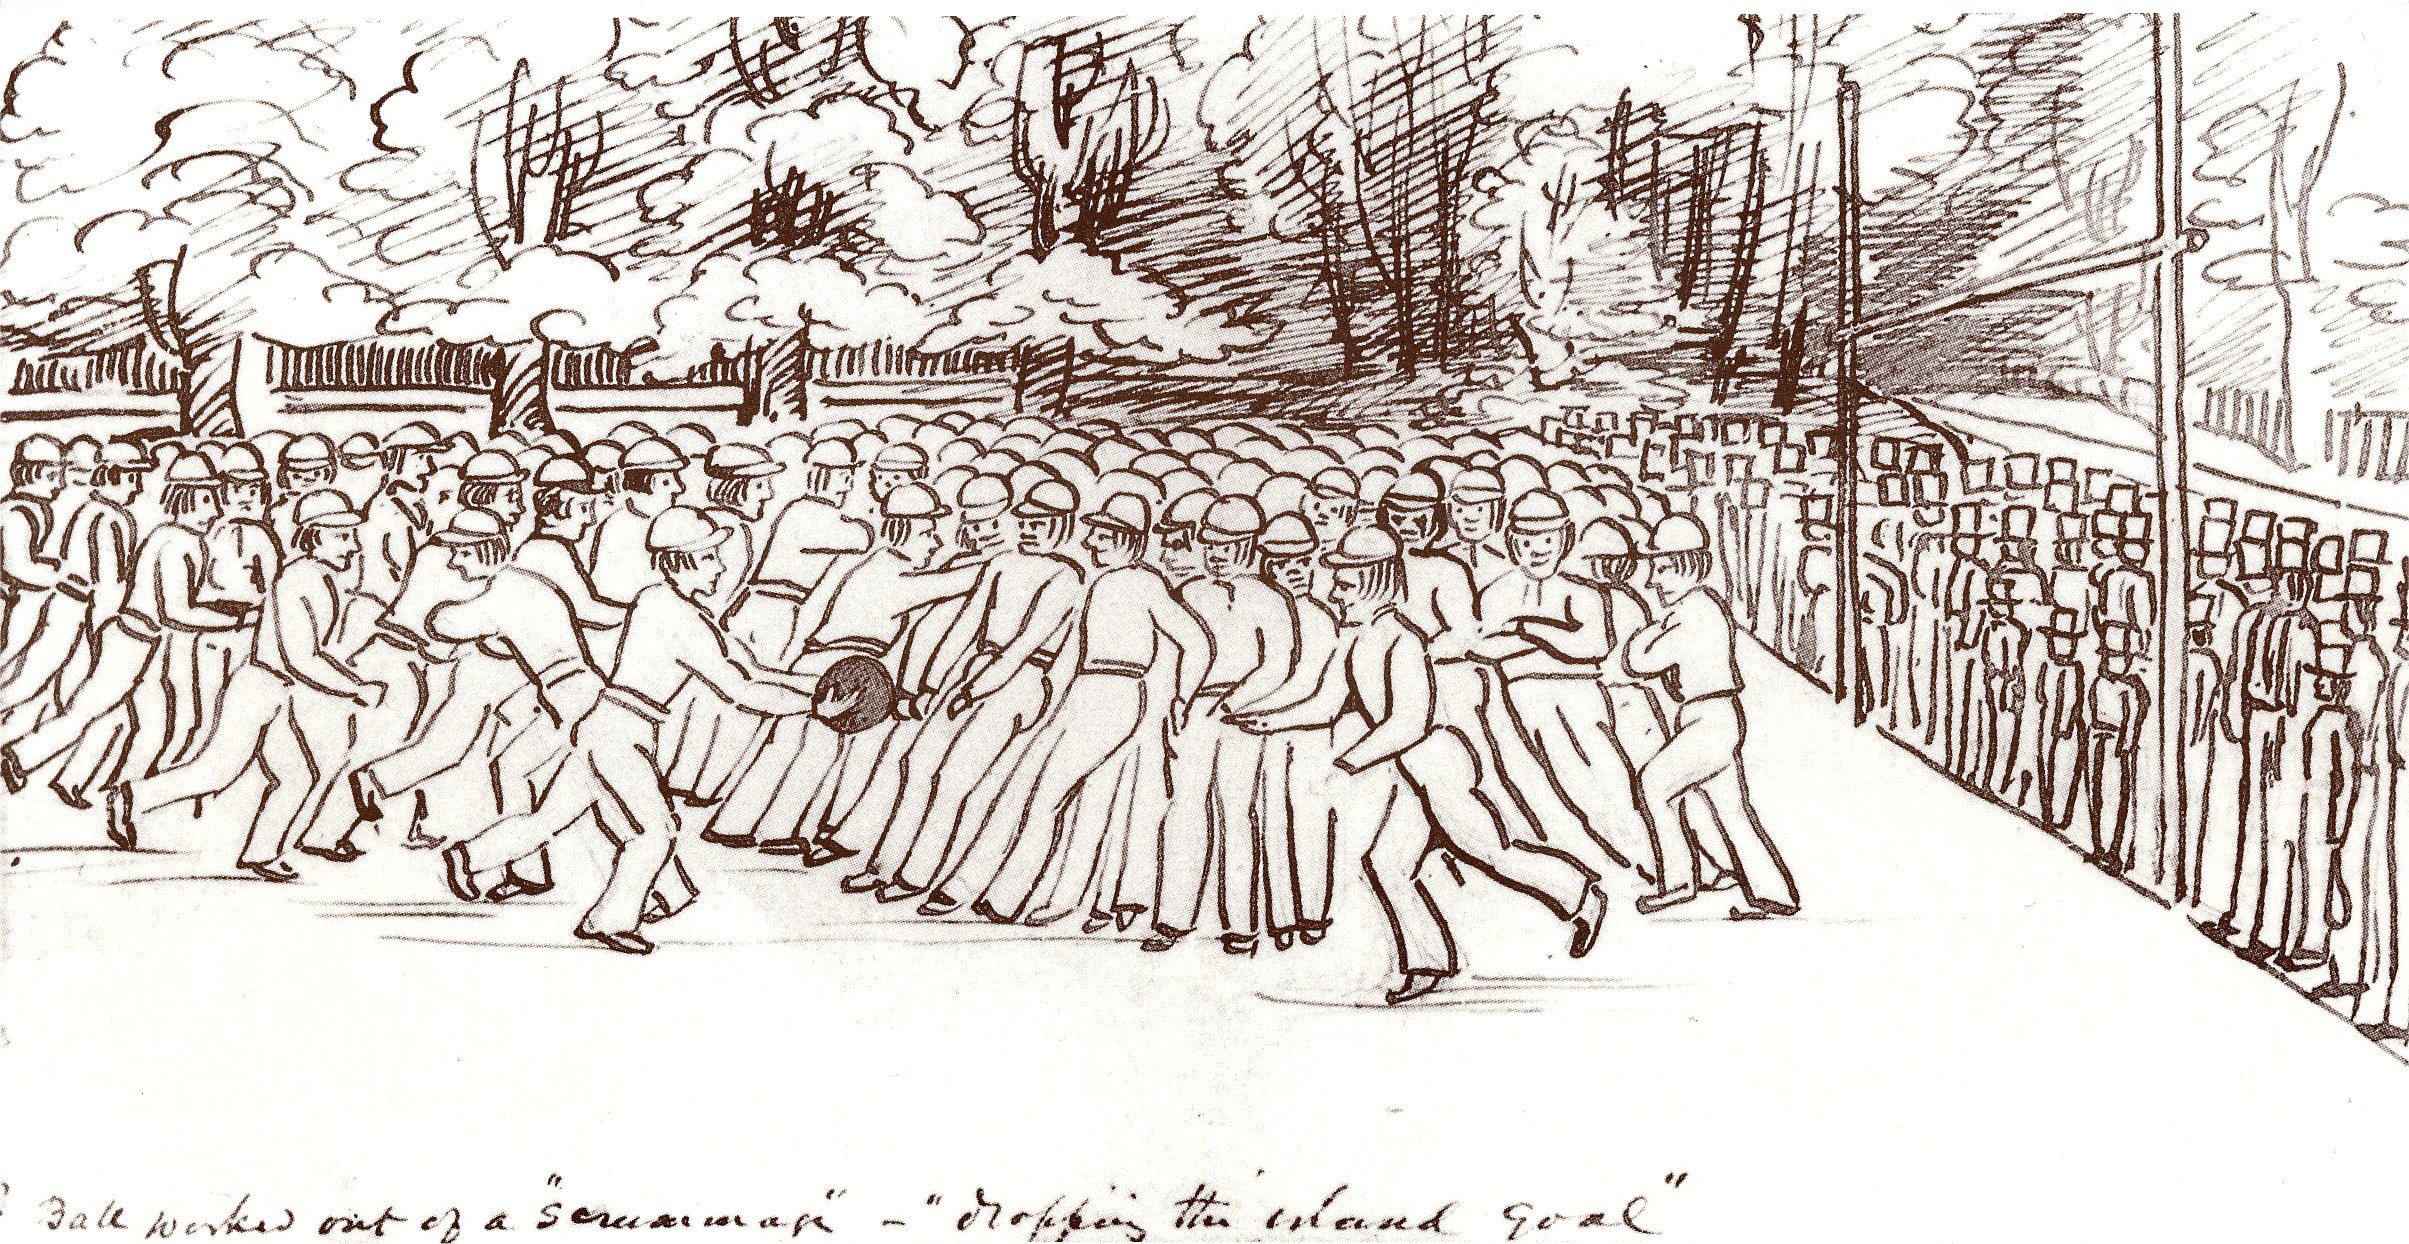 Ball worked out of a "Scrummage" - "dropping the island goal"